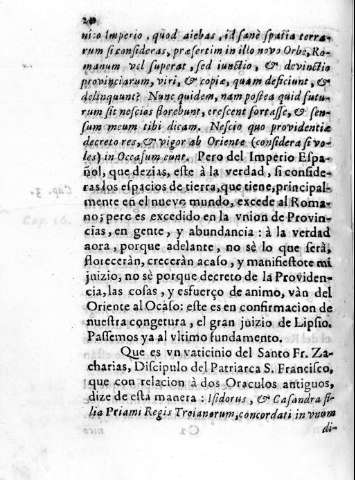 20
nico Imperio, quod aiebas, id sanè spatia terra-
rum si consideras, præsertim in illo novo Orbe, Ro-
manum vel superat, sed iunctio, & devinctio
provinciarum, viri, & copiæ, quam deficiunt, &
delinquunt? Nunc quidem, nam postea quid futu-
rum sit nescio: florebunt, crescent fortasse, & sen-
sum meum tibi dicam. Nescio quo providentiæ
decreto res, & vigor ab Oriente (considera si vo-
les) in Occasum eunt. Pero del Imperio Espa-
ñol, que dezias, este à la verdad, si conside-
ras los espacios de tierra, que tiene, principal-
mente en el nuevo mundo, excede al Roma-
no; pero es excedido en la vnion de Provin-
cias, en gente, y abundancia : à la verdad
aora, porque adelante, no sè lo que serà,
floreceràn, creceràn acaso, y manifiestote mi
juizio, no sè porque decreto de la Providen-
cia, las cosas, y esfuerço de animo, vàn del
Oriente al Ocaso: este es en confirmacion de
nuestra congetura, el gran juizio de Lipsio.
Passemos ya al vltimo fundamento.
Que es vn vaticinio del Santo Fr. Za-
charias, Discipulo del Patriarca S. Francisco,
que con relacion à dos Oraculos antiguos,
dize de esta manera : Isidorus, & Casandra fi-
lia Priami Regis Troianorum, concordati in vnum
di-